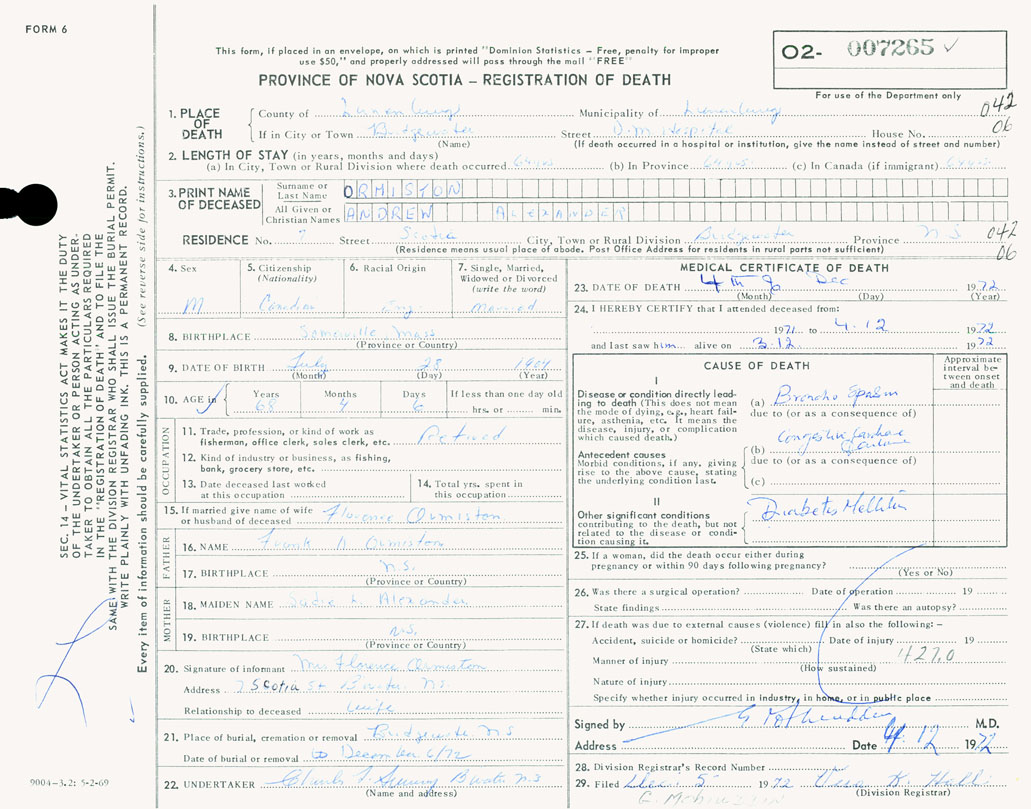 FORM 6
This form, if placed in an envelope, on which is printed "Dominion Statistics – Free, penalty for improper
use $50," and properly addressed will pass through the mail "FREE"
PROVINCE OF NOVA SCOTIA – REGISTRATION OF DEATH
O2- 007265 ✓
For use of the Department only
042
06
1. PLACE OF DEATH
County of Lunenburg Municipality of Lunenburg
If in City or Town Bridgewater Street D.M. Hospital House No.
(Name) (If death occurred in a hospital or institution, give the name instead of street and number)
2. LENGTH OF STAY (in years, months and days)
(a) In City, Town or Rural Division where death occurred 64 yrs (b) In Province 64 yrs. (c) In Canada (if immigrant) 64 yrs.
3. PRINT NAME OF DECEASED
Surname or Last Name ORMISTON
All Given or Christian Names ANDREW ALEXANDER
RESIDENCE No. 7 Street Scotia City, Town or Rural Division Bridgewater Province N S
(Residence means usual place of abode. Post Office Address for residents in rural parts not sufficient)
042
06
4. Sex
M
5. Citizenship
(Nationality)
Canadian
6. Racial Origin
Eng
7. Single, Married,
Widowed or Divorced
(write the word)
Married
8. BIRTHPLACE Somerville, Mass
(Province or Country)
9. DATE OF BIRTH July 28 1904
(Month) (Day) (Year)
10. AGE in
Years Months Days If less than one day old
68 4 6 hrs. or min.
OCCUPATION
11. Trade, profession, or kind of work as
fisherman, office clerk, sales clerk, etc. Retired
12. Kind of industry or business, as fishing,
bank, grocery store, etc.
13. Date deceased last worked
at this occupation
14. Total yrs. spent in
this occupation
15. If married give name of wife
or husband of deceased Florence Ormiston
FATHER
16. NAME Frank A Ormiston
17. BIRTHPLACE N.S.
(Province or Country)
MOTHER
18. MAIDEN NAME Sadie L. Alexander
19. BIRTHPLACE N.S.
(Province or Country)
20. Signature of informant Mrs Florence Ormiston
Address 7 Scotia St B'water N.S.
Relationship to deceased Wife
21. Place of burial, cremation or removal Bridgewater N S
Date of burial or removal December 6/72
22. UNDERTAKER B'water N.S
(Name and address)
MEDICAL CERTIFICATE OF DEATH
23. DATE OF DEATH 4th of Dec 1972
(Month) (Day) (Year)
24. I HEREBY CERTIFY that I attended deceased from:
1971 to 4.12 1972
and last saw him alive on 3.12 1972
CAUSE OF DEATH
Approximate
interval be-
tween onset
and death
I
Disease or condition directly lead-
ing to death (This does not mean
the mode of dying, e.g., heart fail-
ure, asthenia, etc. It means the
disease, injury, or complication
which caused death.)
(a) Broncho Spasm
due to (or as a consequence of)
Antecedent causes
Morbid conditions, if any, giving
rise to the above cause, stating
the underlying condition last.
(b) Congestive Cardiac Failure
due to (or as a consequence of)
(c)
II
Other significant conditions
contributing to the death, but not
related to the disease or condi-
tion causing it.
Diabetes Mellitus
25. If a woman, did the death occur either during
pregnancy or within 90 days following pregnancy?
(Yes or No)
26. Was there a surgical operation? Date of operation 19
State findings Was there an autopsy?
27. If death was due to external causes (violence) fill in also the following: –
Accident, suicide or homicide? Date of injury 19
(State which)
Manner of injury 4270
(How sustained)
Nature of injury
Specify whether injury occurred in industry, in home, or in public place
Signed by M.D.
Address Date 4.12 1972
28. Division Registrar's Record Number
29. Filed Dec 5 1972
(Division Registrar)
SEC. 14 – VITAL STATISTICS ACT MAKES IT THE DUTY
OF THE UNDERTAKER OR PERSON ACTING AS UNDER-
TAKER TO OBTAIN ALL THE PARTICULARS REQUIRED
IN THE "REGISTRATION OF DEATH" AND TO FILE THE
SAME WITH THE DIVISION REGISTRAR WHO SHALL ISSUE THE BURIAL PERMIT.
WRITE PLAINLY WITH UNFADING INK. THIS IS A PERMANENT RECORD.
Every item of information should be carefully supplied. (See reverse side for instructions.)
9004-3.2: 5-2-69